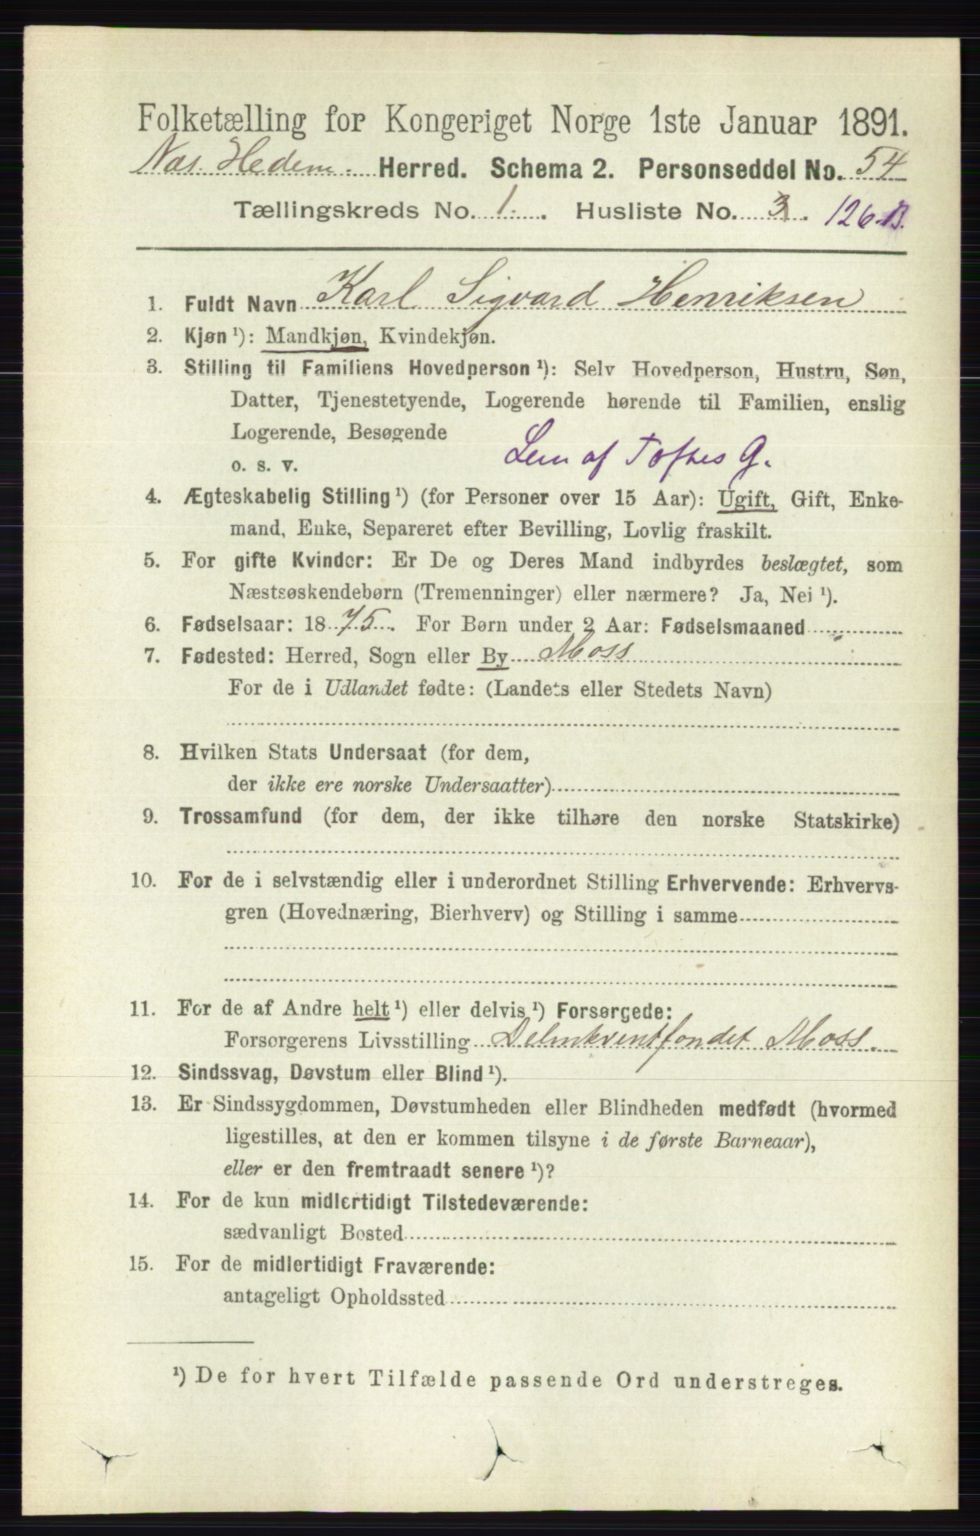 Folketælling for Kongeriget Norge 1ste Januar 1891.
Nes. Hedem. Herred. Schema 2. Personseddel No. 54
Tællingskreds No. 1. Husliste No. 3. 126 B.
1. Fuldt Navn Karl Sigvard Henriksen
2. Kjøn ¹): Mandkjøn, Kvindekjøn.
3. Stilling til Familiens Hovedperson ¹): Selv Hovedperson, Hustru, Søn,
Datter, Tjenestetyende, Logerende hørende til Familien, enslig
Logerende, Besøgende
o. s. v. Lem af Toftes G.
4. Ægteskabelig Stilling ¹) (for Personer over 15 Aar): Ugift, Gift, Enke-
mand, Enke, Separeret efter Bevilling, Lovlig fraskilt.
5. For gifte Kvinder: Er De og Deres Mand indbyrdes beslægtet, som
Næstsøskendebørn (Tremenninger) eller nærmere? Ja, Nei ¹).
6. Fødselsaar: 1875. For Børn under 2 Aar: Fødselsmaaned
7. Fødested: Herred, Sogn eller By Moss
For de i Udlandet fødte: (Landets eller Stedets Navn)
8. Hvilken Stats Undersaat (for dem,
der ikke ere norske Undersaatter)
9. Trossamfund (for dem, der ikke tilhøre den norske Statskirke)
10. For de i selvstændig eller i underordnet Stilling Erhvervende: Erhvervs-
gren (Hovednæring, Bierhverv) og Stilling i samme
11. For de af Andre helt ¹) eller delvis ¹) Forsørgede:
Forsørgerens Livsstilling Delinkventfondet Moss.
12. Sindssvag, Døvstum eller Blind ¹).
13. Er Sindssygdommen, Døvstumheden eller Blindheden medfødt (hvormed
ligestilles, at den er kommen tilsyne i de første Barneaar),
eller er den fremtraadt senere ¹)?
14. For de kun midlertidigt Tilstedeværende:
sædvanligt Bosted
15. For de midlertidigt Fraværende:
antageligt Opholdssted
¹) De for hvert Tilfælde passende Ord understreges.